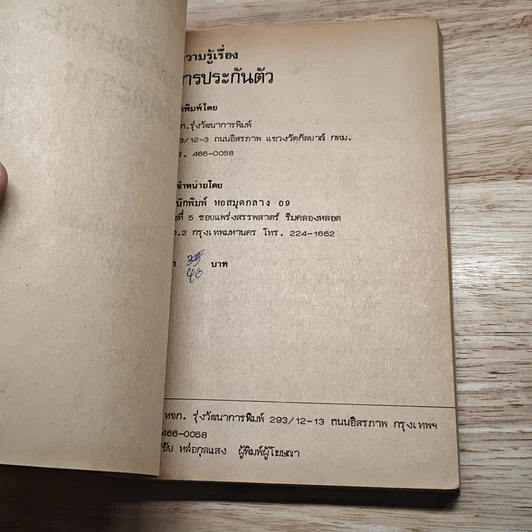 วามรู้เรื่อง
ารประกันตัว
พิมพ์โดย
จก. รุ่งวัฒนาการพิมพ์
3/12-3 ถนนอิสรภาพ แขวงวัดกัลยาณ์ กทม.
ร. 466-0058
จำหน่ายโดย
นักพิมพ์ หอสมุดกลาง 09
ที่ 5 ซอยแพร่งสรรพสาตร์ ริมคลองหลอด
ท.2 กรุงเทพมหานคร โทร. 224-1662
35
40 บาท
หจก. รุ่งวัฒนาการพิมพ์ 293/12-13 ถนนอิสรภาพ กรุงเทพฯ
466-0058
ชัย หล่อกุลแสง ผู้พิมพ์ผู้โฆษณา